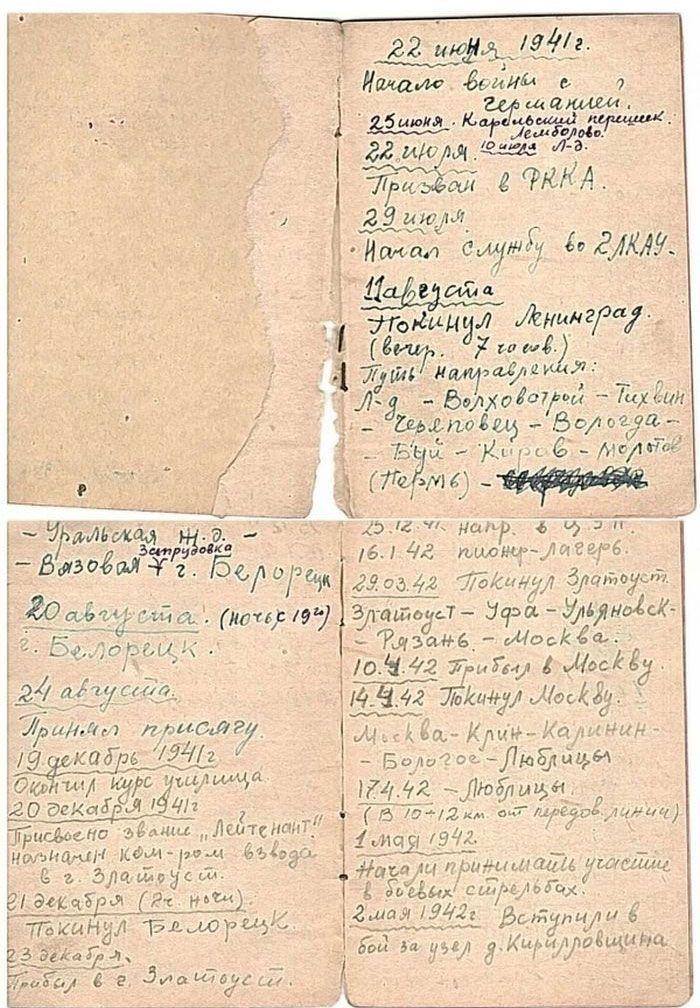 22 июня 1941 г.
Начало войны с
Германией.
25 июня. Карельский перешеек.
Лемболово.
22 июля. 10 июля Л-д.
Призван в РККА.
29 июля
Начал службу во 2ЛКАУ.
11 августа
Покинул Ленинград.
(вечер. 7 часов.)
Путь направления:
Л-д - Волховстрой - Тихвин
- Череповец - Вологда -
- Буй - Киров - Молотов
(Пермь) -
- Уральская ж.д. -
Запрудовка
- Вязовая - г. Белорецк
20 августа. (ночь с 19го)
г. Белорецк
24 августа.
Принял присягу.
19 декабрь 1941г
Окончил курс училища.
20 декабря 1941г
Присвоено звание „Лейтенант"
назначен ком-ром взвода
в г. Златоуст.
21 декабря (2ч. ночи).
Покинул Белорецк.
23 декабря.
Прибыл в г. Златоуст.
25.12.41. напр. в
16.1.42 пионер-лагерь.
29.03.42 Покинул Златоуст.
Златоуст - Уфа - Ульяновск -
- Рязань - Москва.
10.4.42 Прибыл в Москву.
14.4.42 Покинул Москву.
Москва - Клин - Калинин -
- Бологое - Люблицы
17.4.42 - Люблицы
(В 10÷12 км. от передов. линии)
1 мая 1942.
Начали принимать участие
в боевых стрельбах.
2 мая 1942г. Вступили в
бой за узел д. Кирилловщина